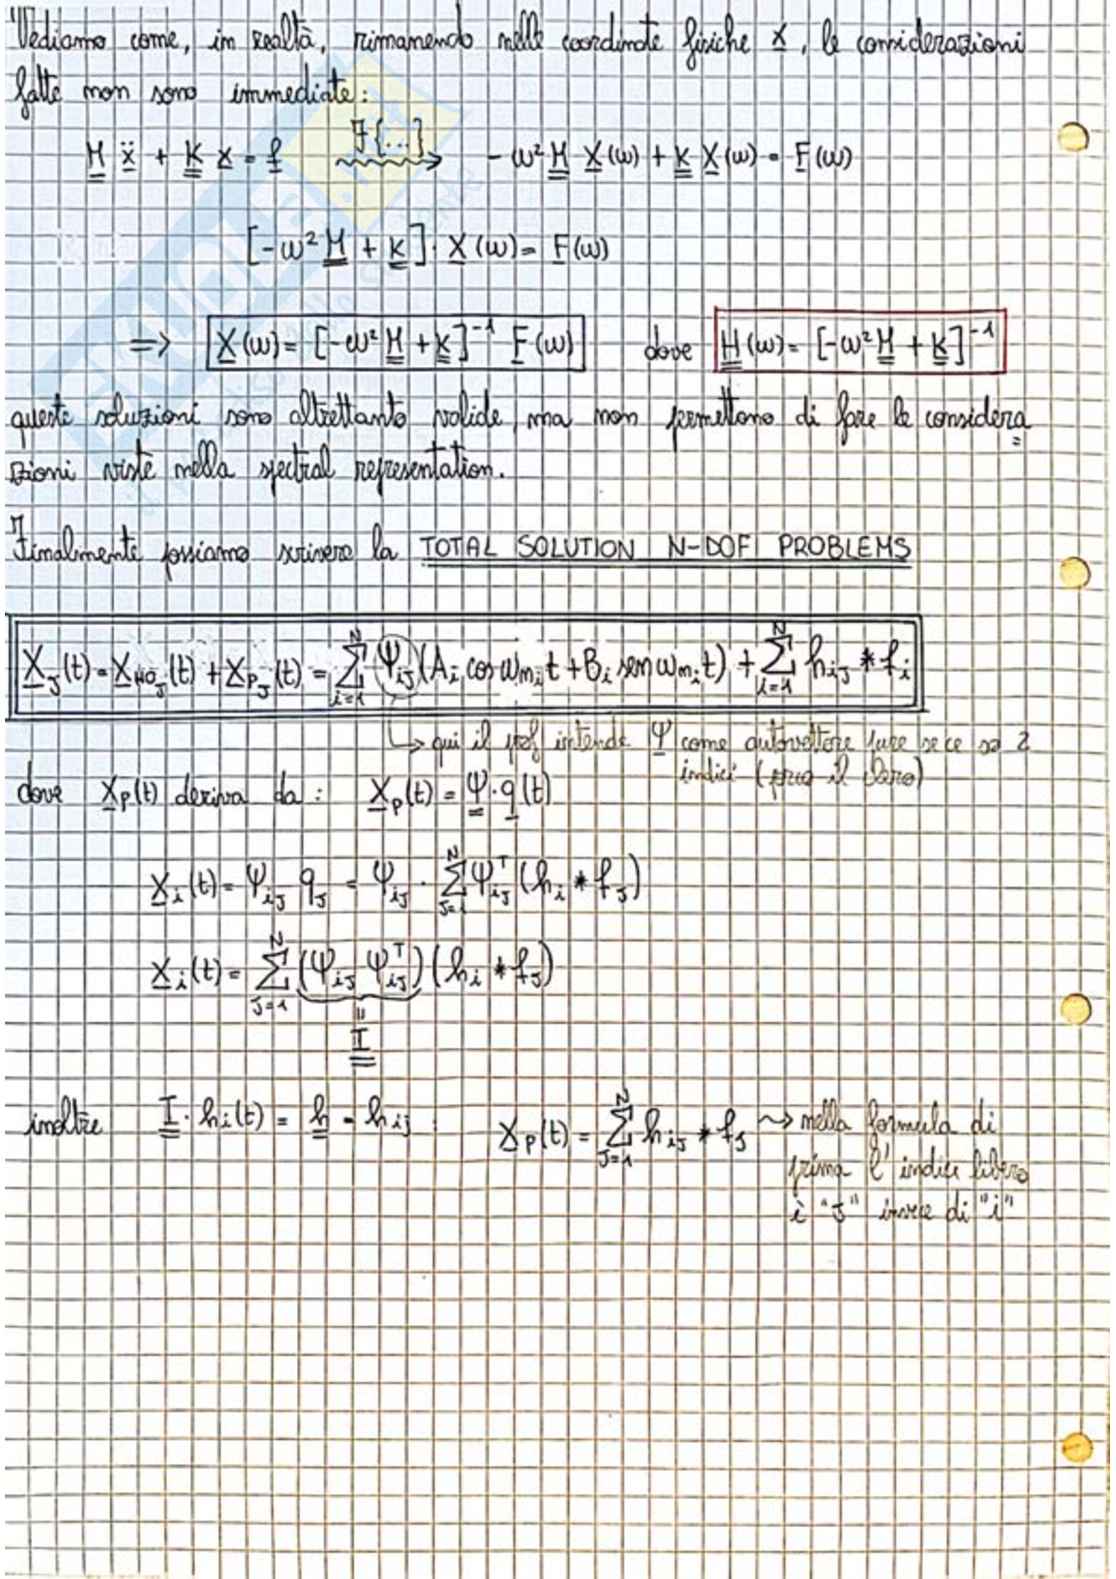 Vediamo come, in realtà, rimanendo nelle coordinate fisiche x, le considerazioni
fatte non sono immediate:
M ẍ + K x = f   F{...} →   -ω² M X(ω) + K X(ω) = F(ω)
[-ω² M + K] · X(ω) = F(ω)
=> X(ω) = [-ω² M + K]⁻¹ F(ω)   dove   H(ω) = [-ω² M + K]⁻¹
queste soluzioni sono altrettanto valide, ma non permettono di fare le considera
zioni viste nella spectral representation.
Finalmente possiamo scrivere la TOTAL SOLUTION N-DOF PROBLEMS
X_J(t) = X_HO_J(t) + X_P_J(t) = Σ_{i=1}^{N} Ψ_ij (A_i cos ω_ni t + B_i sen ω_ni t) + Σ_{i=1}^{N} h_ij * f_i
↳ qui il prof intende Ψ come autovettore pure se ce so 2
indici
dove X_P(t) deriva da: X_P(t) = Ψ · q(t)
X_i(t) = Ψ_ij q_j = Ψ_ij · Σ_{J=1}^{N} Ψ_ij^T (h_i * f_J)
X_i(t) = Σ_{J=1}^{N} (Ψ_ij Ψ_ij^T) (h_i * f_J)
=
I
inoltre I · h_i(t) = h = h_ij :   X_P(t) = Σ_{J=1}^{N} h_ij * f_J ⇝ nella formula di
prima l'indice libero
è "J" invece di "i"